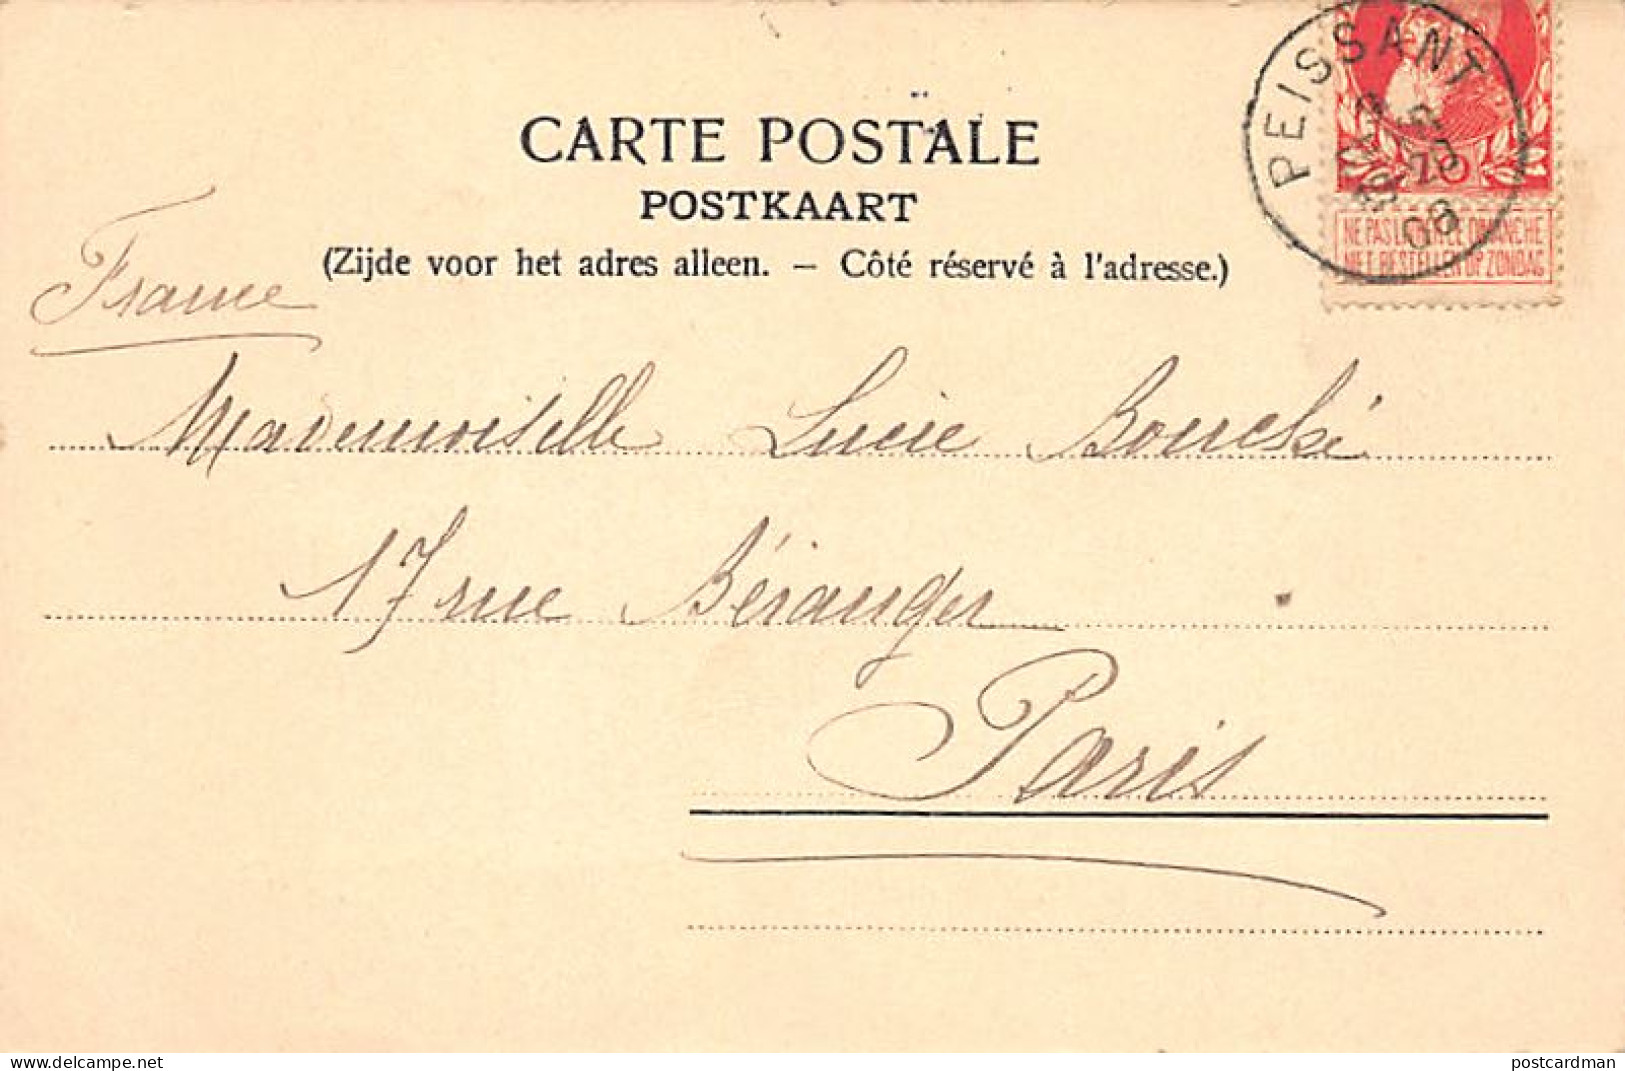 CARTE POSTALE
POSTKAART
(Zijde voor het adres alleen. – Côté réservé à l'adresse.)
PEISSANT
08
NE PAS LIVRER LE DIMANCHE
NIET BESTELLEN OP ZONDAG
France
Mademoiselle Lucie Bouché
17 rue Béranger
Paris
delcampe.net
postcardman